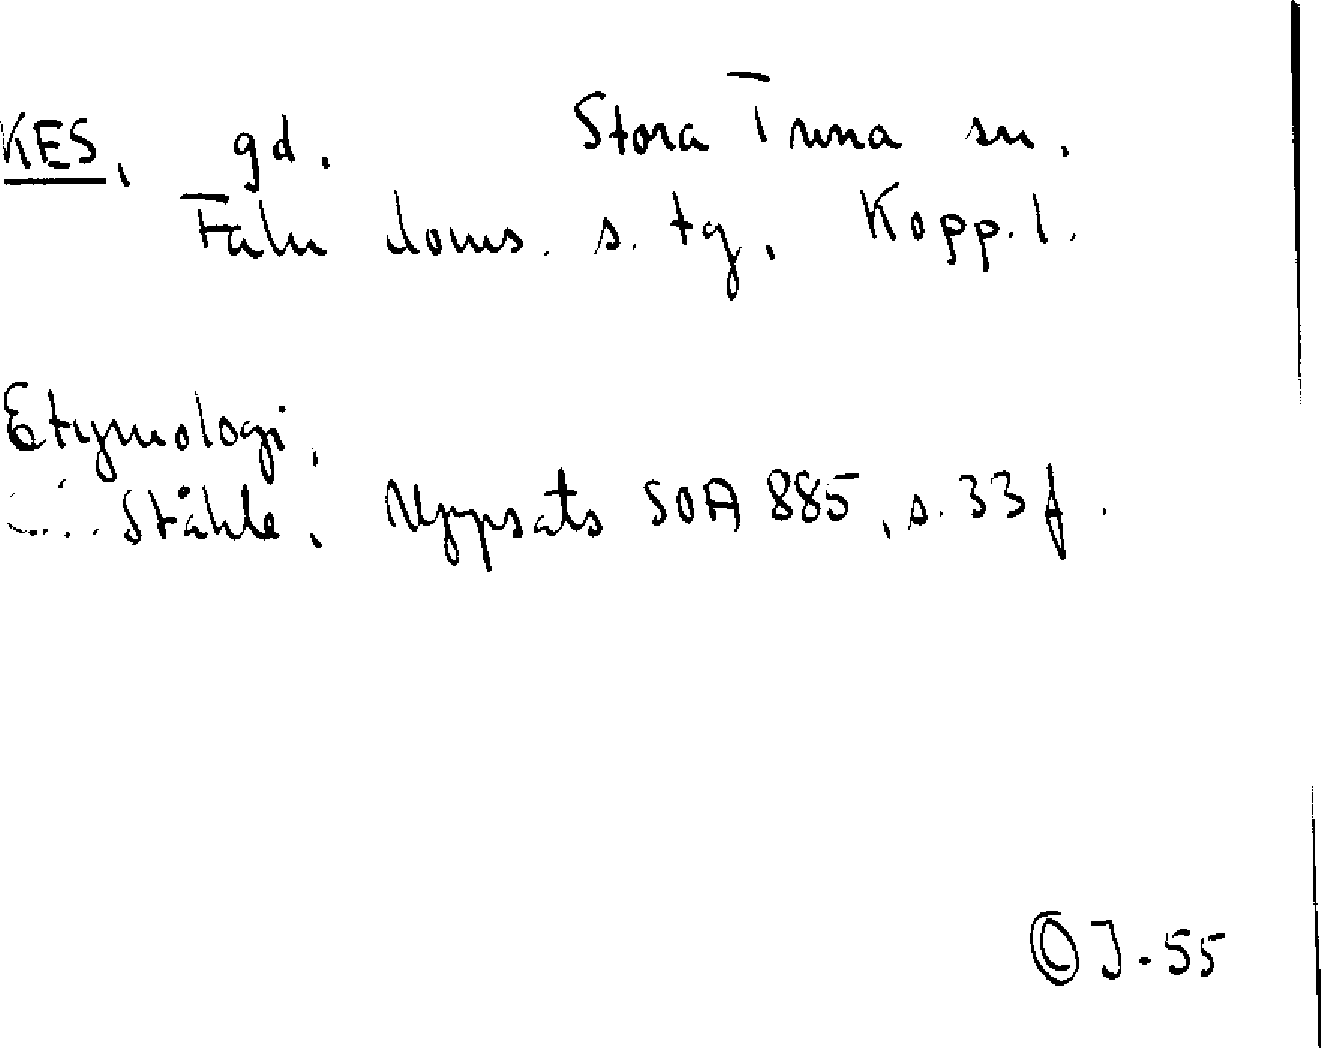 KES, gd. Stora Tuna sn.
Falu doms. s. tg, Kopp. l.
Etymologi,
Ståhle, Uppsats SOA 885, s. 33 f.
© J-55